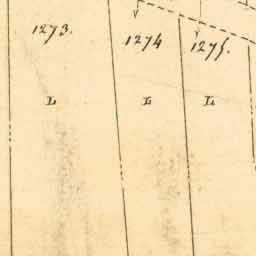 1273.
1274
1275.
L
L
L